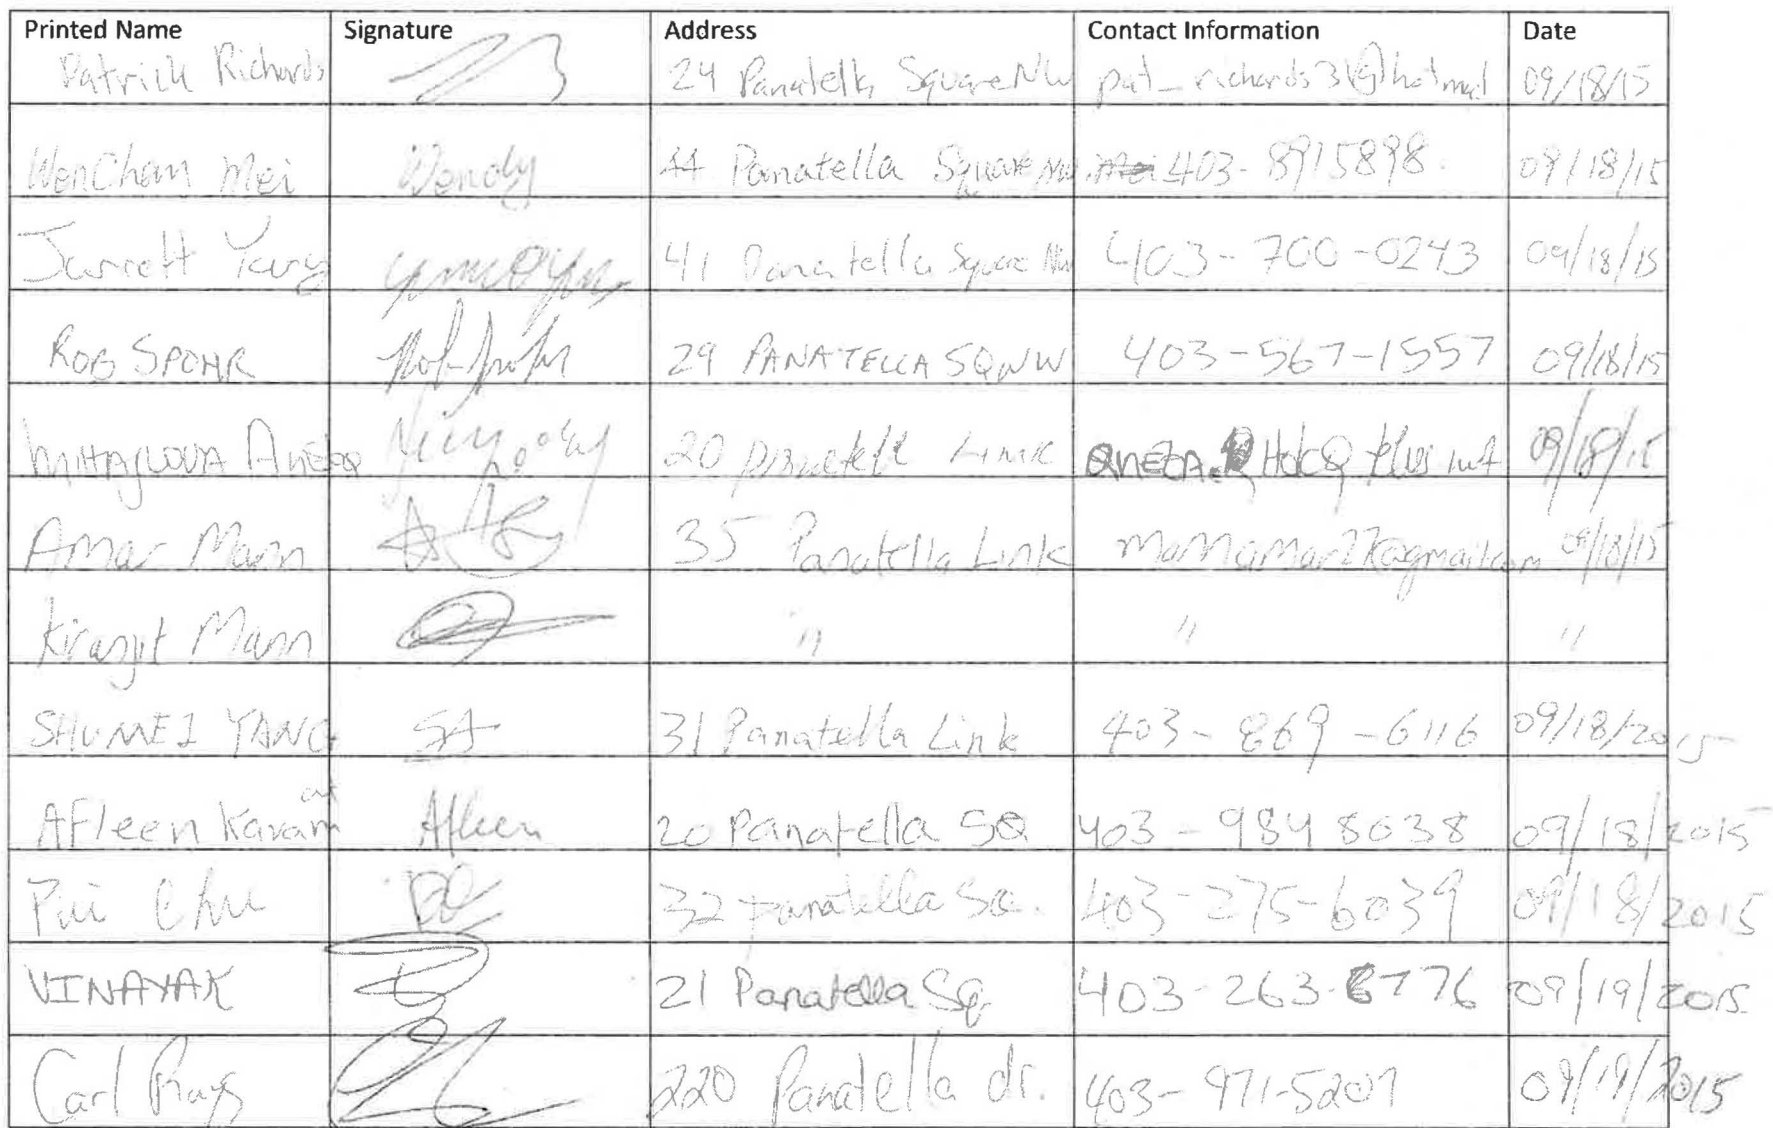 Printed Name Signature Address Contact Information Date
Patrick Richards 24 Panatella Square NW pat_richards3 @hotmail 09/18/15
WenChan Mei Wendy 44 Panatella Square NW 403-8915898. 09/18/15
Jarrett Yang 41 Panatella Square NW 403-700-0243 09/18/15
ROB SPOHR 29 PANATELLA SQ NW 403-567-1557 09/18/15
MIHAJLOVA ANETA 20 Link 09/18/15
Amar Mann 35 Panatella Link 09/18/15
Kiranjit Mann " " "
SHUMEI YANG SA 31 Panatella Link 403-869-6116 09/18/2015
AFleen Afleen 20 Panatella SQ 403-984 8038 09/18/2015
Pui Chu PC 32 Panatella Sq. 403-275-6039 09/18/2015
VINAYAK 21 Panatella Sq. 403-263-6776 09/19/2015
Carl 220 Panatella dr. 403-971-5207 09/19/2015